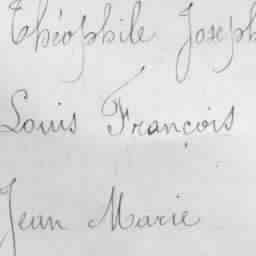 Théophile Joseph
Louis François
Jean Marie